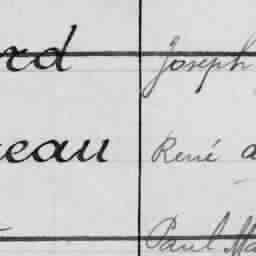 rd Joseph
eau René
Paul